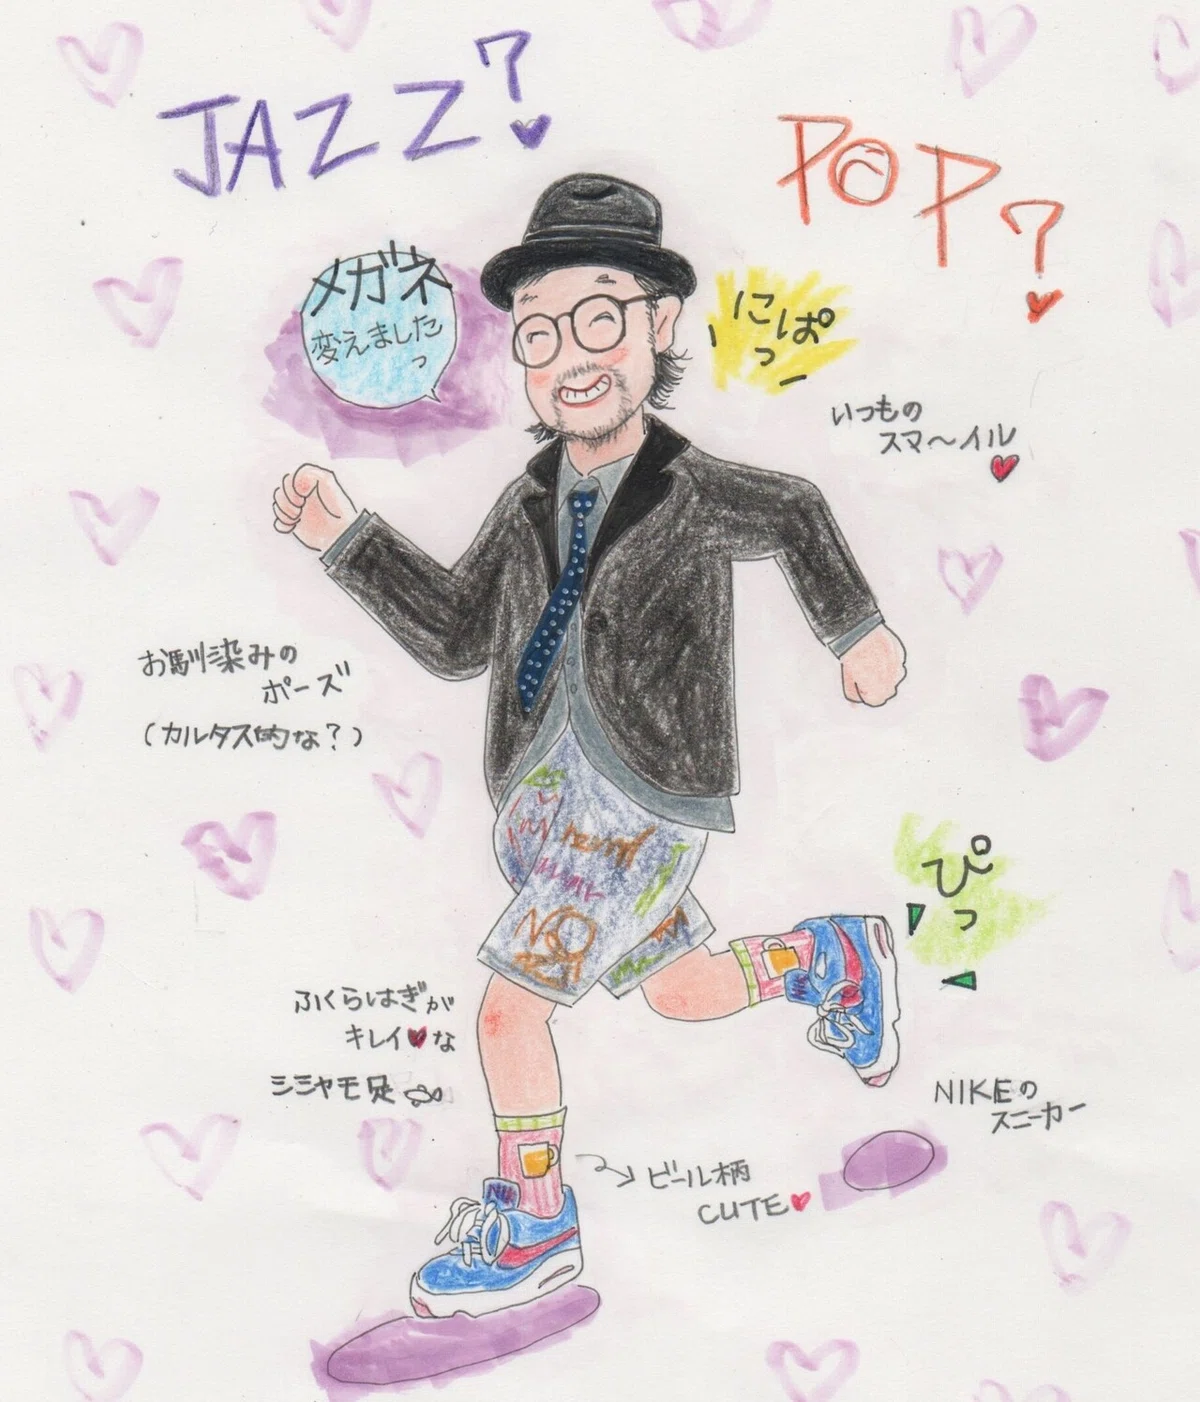 JAZZ?
POP?
メガネ
変えました
っ
にぱ
っ
いつもの
スマ〜イル
お馴染みの
ポーズ
(カルタス的な?)
ぴ
っ
ふくらはぎが
キレイ♥な
シシャモ足
NIKEの
スニーカー
ビール柄
CUTE♥